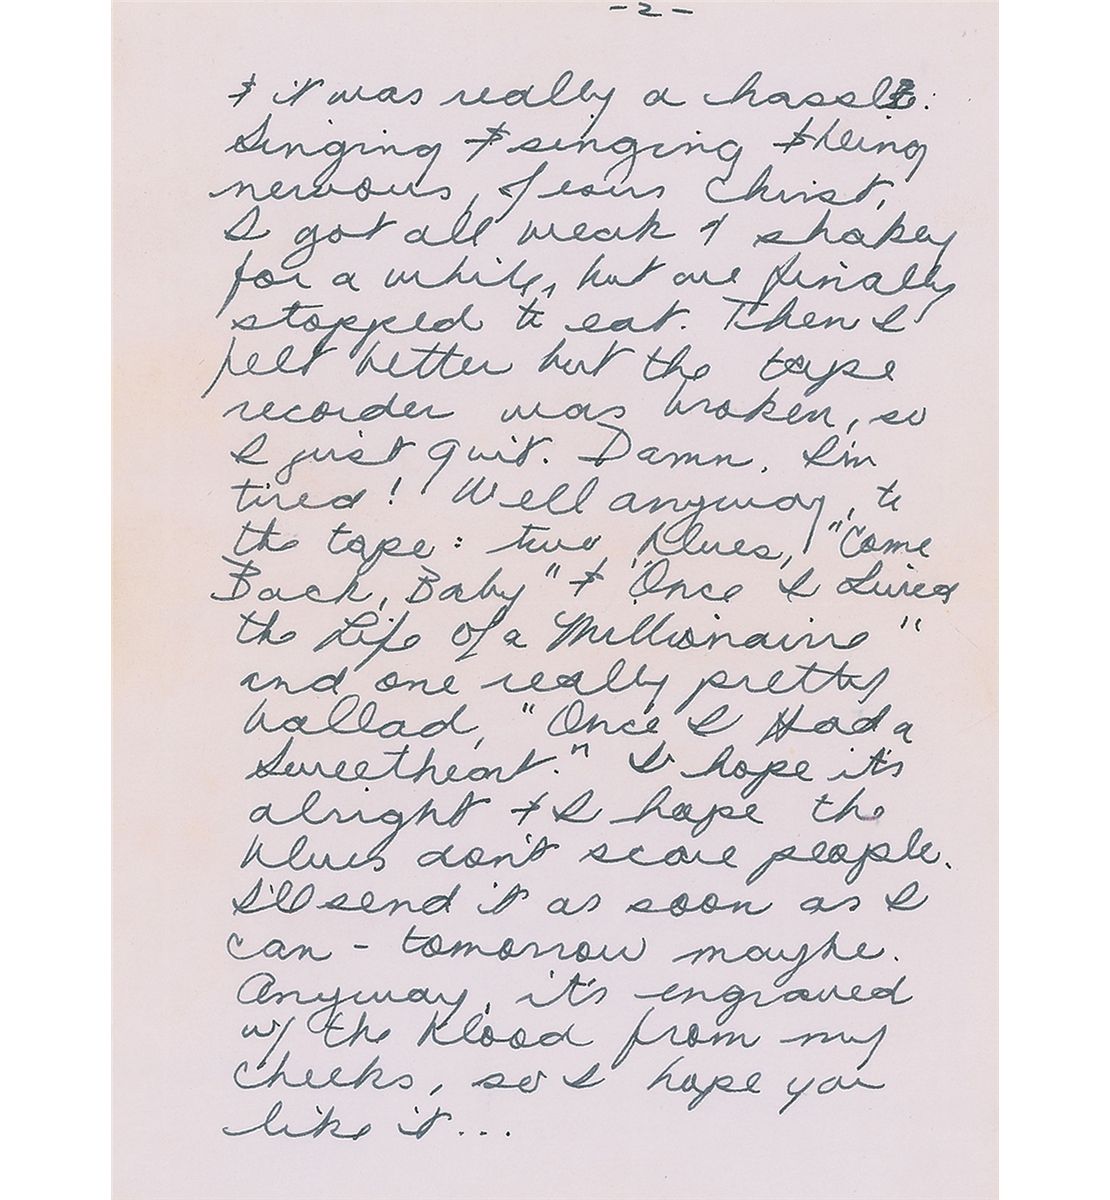 -2-
& it was really a hassle.
Singing & singing & being
nervous, Jesus Christ,
I got all weak & shakey
for a while, but we finally
stopped to eat. Then I
felt better but the tape
recorder was broken, so
I just quit. Damn, I'm
tired! Well anyway, to
the tape: two blues, "Come
Back, Baby" & "Once I Lived
the Life of a Millionaire"
and one really pretty
ballad, "Once I Had a
Sweetheart." I hope it's
alright & I hope the
blues don't scare people.
I'll send it as soon as I
can - tomorrow maybe.
Anyway, it's engraved
w/ the blood from my
cheeks, so I hope you
like it...